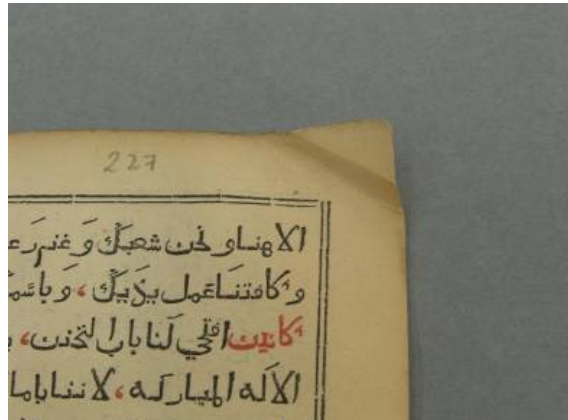 227
الاهنا و نحن شعبك و غنم رع
و كافتنا عمل يديك، و باسم
افتحي لنا باب التحنن،
الاله المباركه، لاننا باما